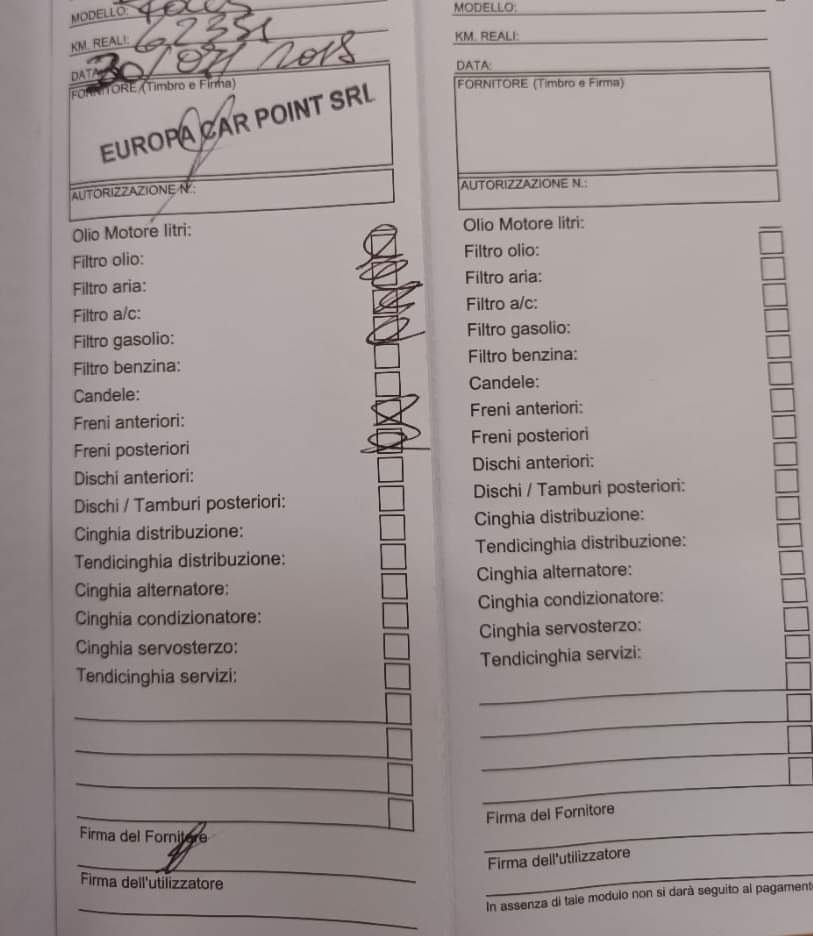 MODELLO: Focus
KM. REALI: 62351
DATA: 30/07/2018
FORNITORE (Timbro e Firma)
EUROPA CAR POINT SRL
AUTORIZZAZIONE N.:
Olio Motore litri:
Filtro olio:
Filtro aria:
Filtro a/c:
Filtro gasolio:
Filtro benzina:
Candele:
Freni anteriori:
Freni posteriori
Dischi anteriori:
Dischi / Tamburi posteriori:
Cinghia distribuzione:
Tendicinghia distribuzione:
Cinghia alternatore:
Cinghia condizionatore:
Cinghia servosterzo:
Tendicinghia servizi:
Firma del Fornitore
Firma dell'utilizzatore
MODELLO:
KM. REALI:
DATA:
FORNITORE (Timbro e Firma)
AUTORIZZAZIONE N.:
Olio Motore litri:
Filtro olio:
Filtro aria:
Filtro a/c:
Filtro gasolio:
Filtro benzina:
Candele:
Freni anteriori:
Freni posteriori
Dischi anteriori:
Dischi / Tamburi posteriori:
Cinghia distribuzione:
Tendicinghia distribuzione:
Cinghia alternatore:
Cinghia condizionatore:
Cinghia servosterzo:
Tendicinghia servizi:
Firma del Fornitore
Firma dell'utilizzatore
In assenza di tale modulo non si darà seguito al pagament